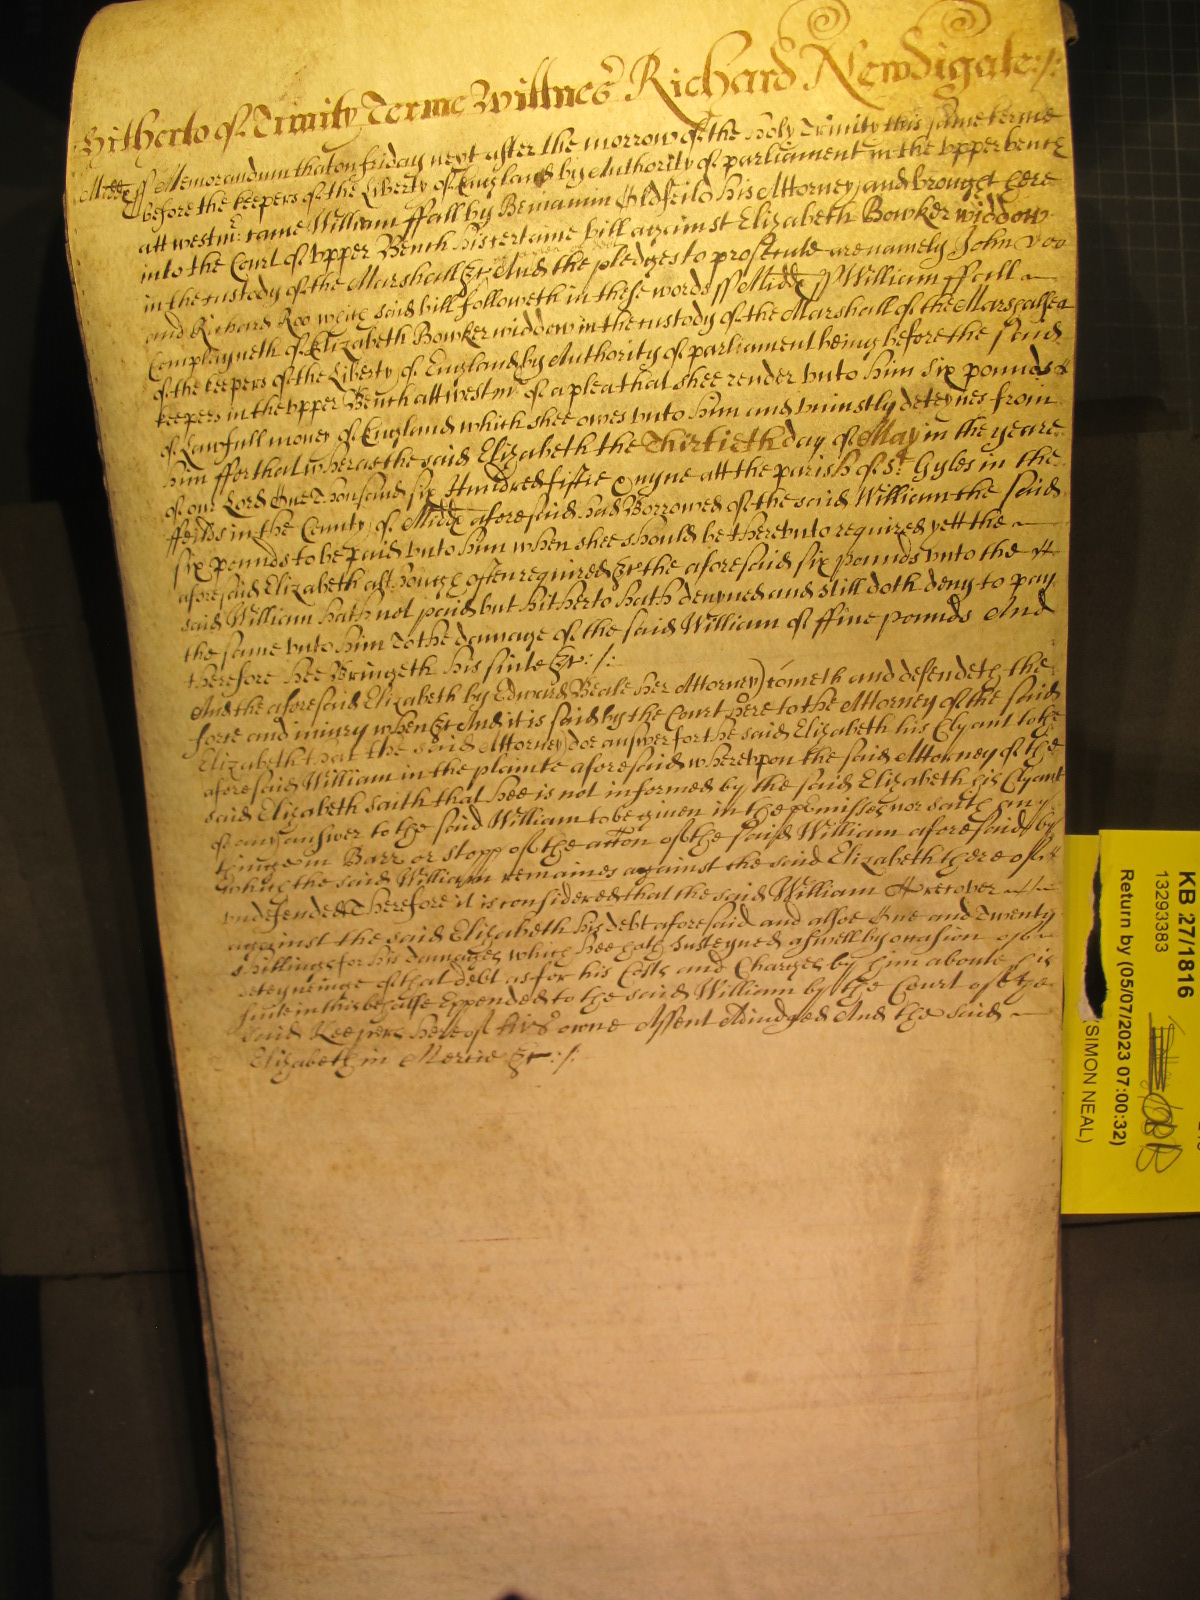 Hitherto of Trinity Terme Wittnes Richard Newdigate:/:
Midds ss Memorandum that on friday next after the morrow of the holy Trinity this same terme
before the keepers of the Liberty of England by Authority of parliament in the vpper bench
att westmr: came William ffall by Beniamin Oldfeild his Attorney and brought here
into the Court of vpper Bench his certaine bill against Elizabeth Bowker widdow
in the custody of the Marshall &c And the pledges to prosecute are namely John Doo
and Richard Roo which said bill followeth in these words ss Midds ss William ffall
Complayneth of Elizabeth Bowker widdow in the custody of the Marshall of the Marshalsea
of the keepers of the Liberty of England by Authority of parliament being before the said
keepers in the vpper Bench att westmr of a plea that shee render vnto him six pounds
of Lawfull money of England which shee owes vnto him and vniustly deteynes from
him ffor that whereas the said Elizabeth the Thirtieth day of May in the yeare
of our Lord One Thousand six Hundred fiftie & nyne att the parish of St Gyles in the
ffeilds in the County of Midds aforesaid had Borrowed of the said William the said
six pounds to be paid vnto him when shee should be therevnto required yett the
aforesaid Elizabeth although often required &c the aforesaid six pounds vnto the
said William hath not paid but hitherto hath denyed and still doth deny to pay
the same vnto him To the damage of the said William of ffiue pounds And
therefore hee Bringeth his suite &c:/:
And the aforesaid Elizabeth by Edward Beale her Attorney cometh and defendeth the
force and iniury when &c And it is said by the Court here to the Attorney of the said
Elizabeth that the said Attorney doe answer for the said Elizabeth his Clyant to the
aforesaid William in the plainte aforesaid wherevpon the said Attorney of the
said Elizabeth saith that hee is not informed by the said Elizabeth his Clyant
of any answer to the said William to be giuen in the p'misses nor saith any
thinge in Barr or stopp of the accon of the said William aforesaid by
which the said William remaines against the said Elizabeth thereof
vndefended Therefore it is considered that the said William recover
against the said Elizabeth his debt aforesaid and alsoe One and Twenty
shillings for his damages which hee hath susteyned aswell by occasion of the
deteyneinge of that debt as for his Costs and Charges by him aboute his
suite in this behalfe expended to the said William by the Court of the
said Keepers here of his owne Assent Adiudged And the said
Elizabeth in Mercie &c:/:
KB 27/1816
13293383
Return by (05/07/2023 07:00:32)
(SIMON NEAL)